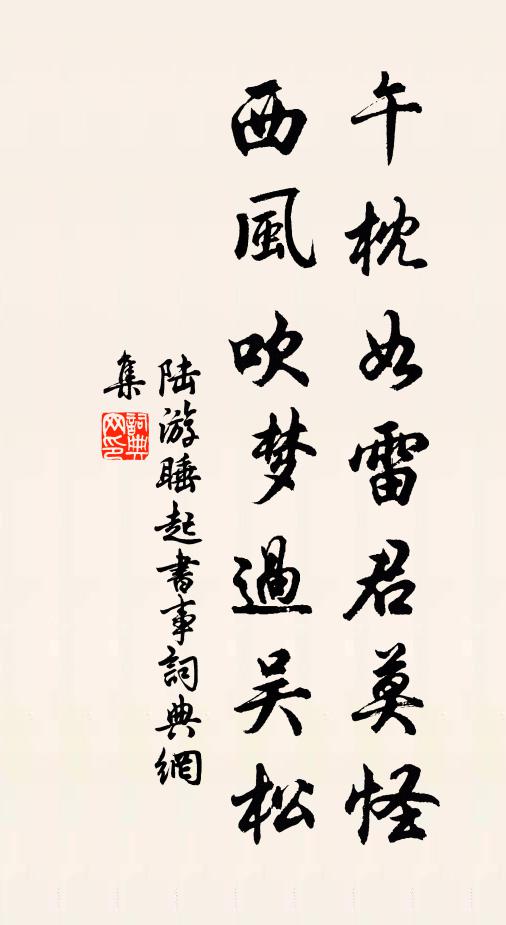 午枕如雷君莫怪
西風吹梦過吴松
陆游睡起書事詞典網
集
詞典网印